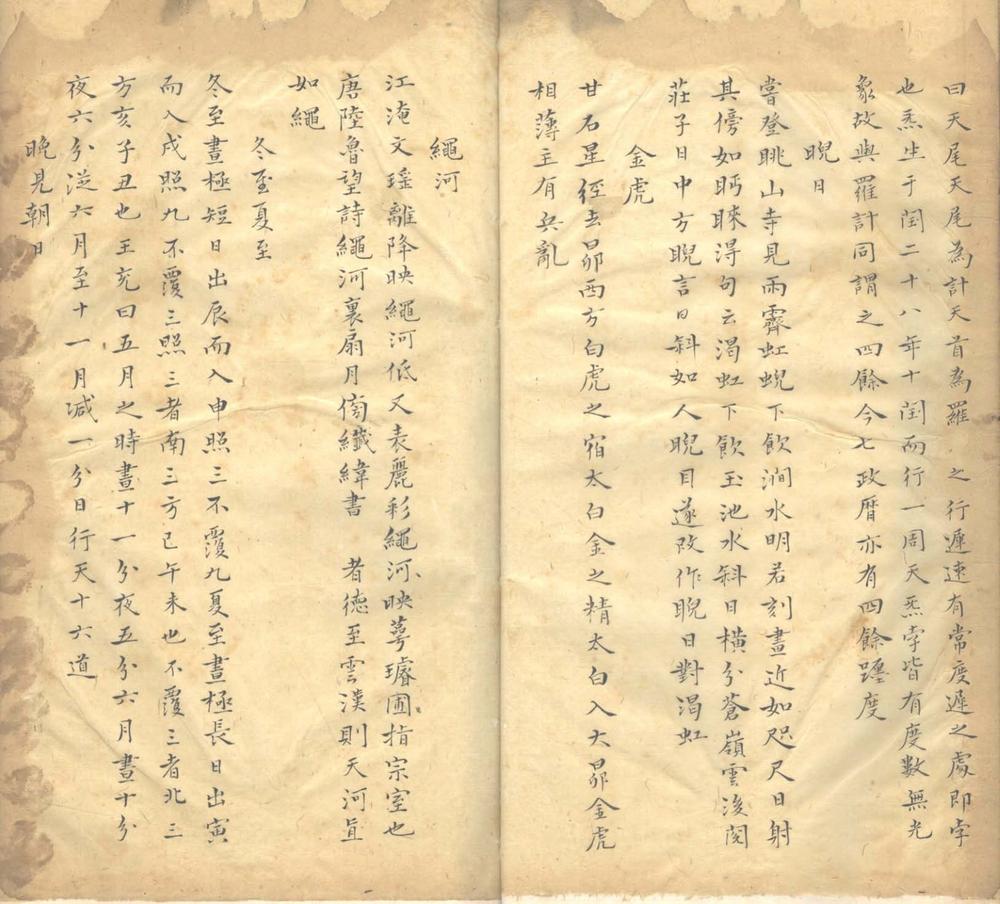 曰天尾天尾為計天首為羅　之行遲速有常度遲之處即孛
也炁生于閏二十八年十閏而行一周天炁孛皆有度數無光
象故與羅計同謂之四餘今七政曆亦有四餘躔度
睨日
嘗登眺山寺見雨霽虹蜺下飲澗水明若刻畫近如咫尺日射
其傍如眄睞得句云渴虹下飲玉池水斜日橫分蒼嶺雲後閱
莊子日中方睨言日斜如人睨目遂改作睨日對渴虹
金虎
甘石星經去昴西方白虎之宿太白金之精太白入大昴金虎
相薄主有兵亂
繩河
江淹文瑤離降映繩河低又表麗彩繩河映萼璿圃指宗室也
唐陸魯望詩繩河裏扇月傍纖緯書　者德至雲漢則天河直
如繩
冬至夏至
冬至晝極短日出辰而入申照三不覆九夏至晝極長日出寅
而入戌照九不覆三照三者南三方巳午未也不覆三者北三
方亥子丑也王充曰五月之時晝十一分夜五分六月晝十分
夜六分從六月至十一月減一分日行天十六道
晚見朝日